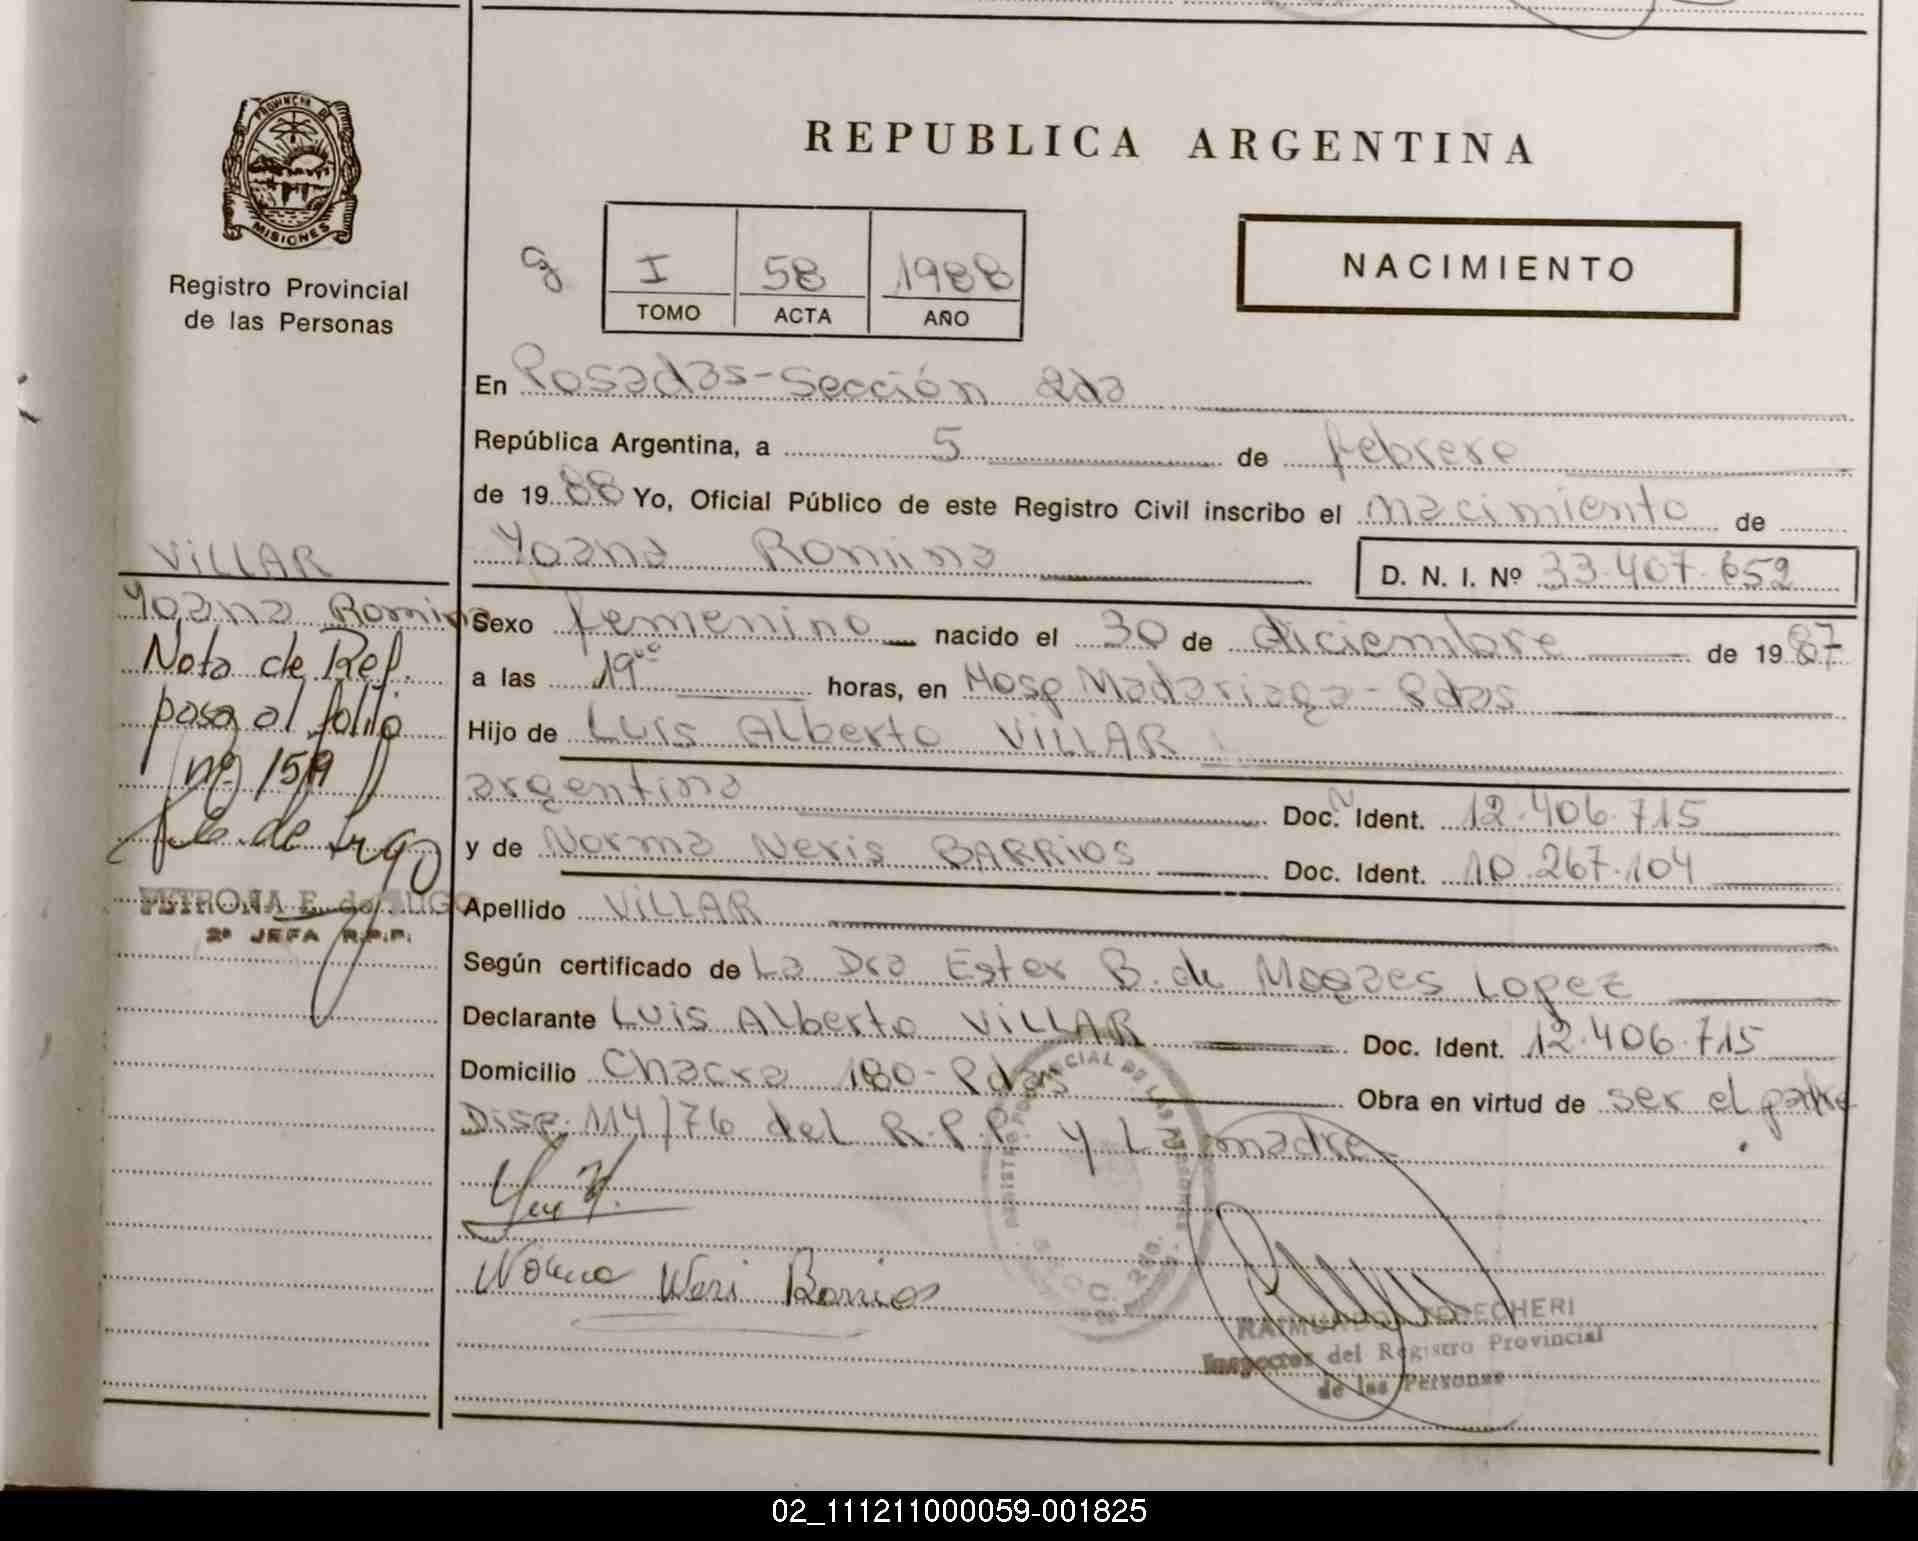 PROVINCIA DE
MISIONES
Registro Provincial
de las Personas
REPUBLICA ARGENTINA
I 58 1988
TOMO ACTA AÑO
NACIMIENTO
En Posadas-Sección 2da
República Argentina, a 5 de febrero
de 1988 Yo, Oficial Público de este Registro Civil inscribo el nacimiento de
Yoana Romina
D. N. I. Nº 33.407.652
Sexo femenino nacido el 30 de diciembre de 1987
a las 19 horas, en Hosp Madariaga-Pdas
Hijo de Luis Alberto VILLAR
argentina Doc. Ident. 12.406.715
y de Norma Neris BARRIOS Doc. Ident. 10.267.104
Apellido VILLAR
Según certificado de La Dra Ester B. de Lopez
Declarante Luis Alberto VILLAR Doc. Ident. 12.406.715
Domicilio Chacra 180-Pdas Obra en virtud de ser el padre
Disp. 114/76 del R.P.P. y La madre
Norma Neri Barrios
RAIMUNDO
Inspector del Registro Provincial
de las Personas
VILLAR
Yoana Romina
Nota de Ref.
pasa al folio
nº 159
de Lugo
PETRONA E. de LUGO
2ª JEFA R.P.P.
02_111211000059-001825